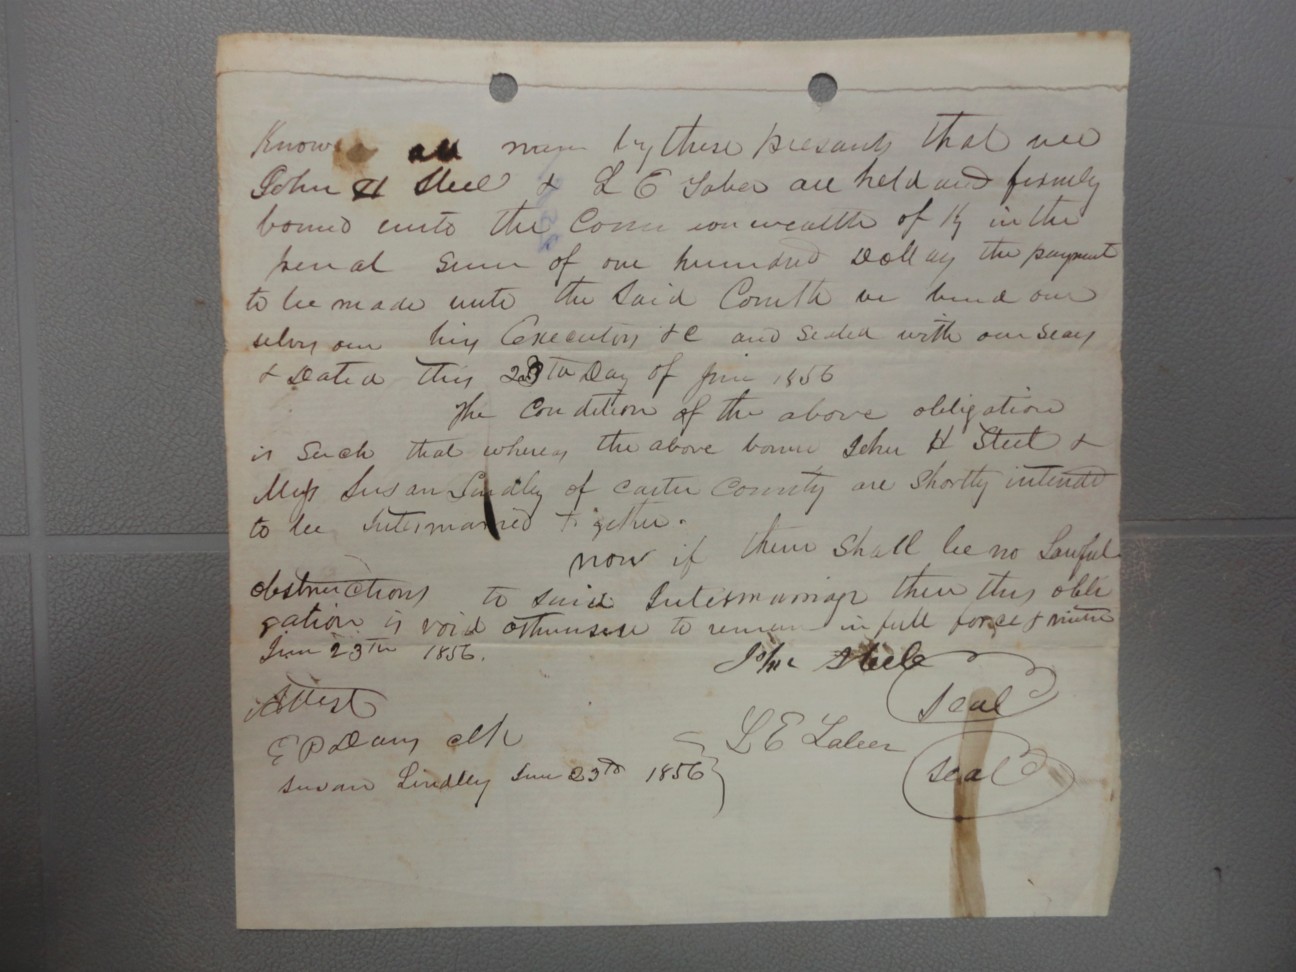 Know all men by these presents that we
John H Steel & L E Taber are held and firmly
bound unto the Commonwealth of Ky in the
penal sum of one hundred Dollars the payment
to be made unto the said Comlth we bind our
selvs our hirs Executors &C and sealed with our seals
& Dated this 23th Day of June 1856
The Condition of the above obligation
is such that whereas the above boun John H Steel &
Miss Susan Lindley of Carter County are shortly intended
to be Intermarried together.
now if there shall be no Lawful
obstructions to said Intermarriage then this obli
gation is void otherwise to remain in full force & virtue
June 23th 1856.
John Steele
seal
Attest
E P Davis clk
L E Taber
seal
Susan Lindley June 23th 1856